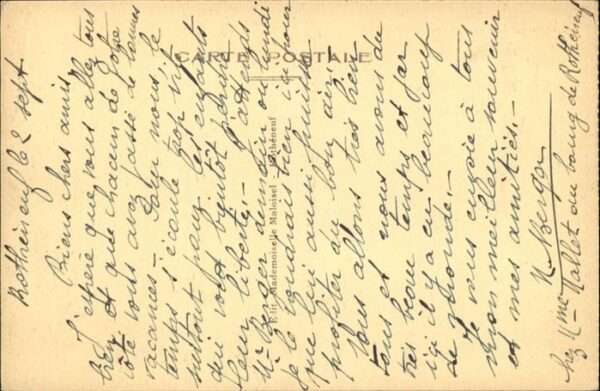 CARTE POSTALE
Edit. Mademoiselle Maloisel - Rothéneuf
Rothéneuf le 2 sept
Biens chers amis,
J'espère que vous allez tous
bien et que chacun de votre
côté vous avez passé de bonnes
vacances. - Pour nous le
temps s'écoule trop vite
surtout pour les enfants
qui vont bientôt perdre
leur liberté. - J'attends
Mr Berger demain ou lundi
je le voudrais bien ici pour
que lui aussi puisse
profiter du bon air.
Nous allons très bien
tous et nous avons du
très beau temps et par
ici il y a eu beaucoup
de monde. -
Je vous envoie à tous
mon meilleur souvenir
et mes amitiés. -
Berger
chez Mme Tallet au bourg de Rothéneuf